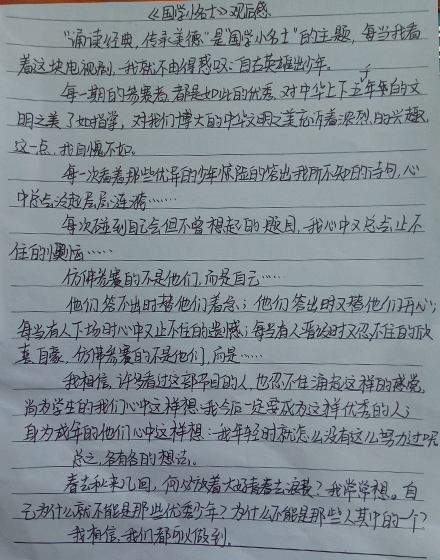 《国学小名士》观后感
"诵读经典，传承美德"是"国学小名士"的主题，每当我看
着这块电视剧，我就不由得感叹：自古英雄出少年。
每一期的参赛者，都是如此的优秀，对中华上下五千年的文
明之美了如指掌，对我们博大的中华文明之美充斥着浓烈的兴趣，
这一点，我自愧不如。
每一次看着那些优泽的少年惊险的答出我所不知的诗句，心
中总会泛起层层涟漪……
每次碰到自己会但不曾想起的题目，我心中又总会止不
住的懊恼……
仿佛参赛的不是他们，而是自己……
他们答不出时替他们着急；他们答出时又替他们开心；
每当有人下场时心中又止不住的遗憾；每当有人晋级时又忍不住的欣
喜自豪，仿佛参赛的不是他们，而是……
我相信，许多看过这部节目的人，也忍不住涌起这样的感觉，
尚为学生的我们心中这样想：我今后一定要成为这样优秀的人；
身为成年的他们心中这样想：我年轻时就怎么没有这么努力过呢
总之，各有各的想法。
春去秋来几回，何必放着大好青春去浪费？我常常想。自
己为什么就不能是那些优秀少年？为什么不能是那些人其中的一个？
我相信，我们都可以做到。